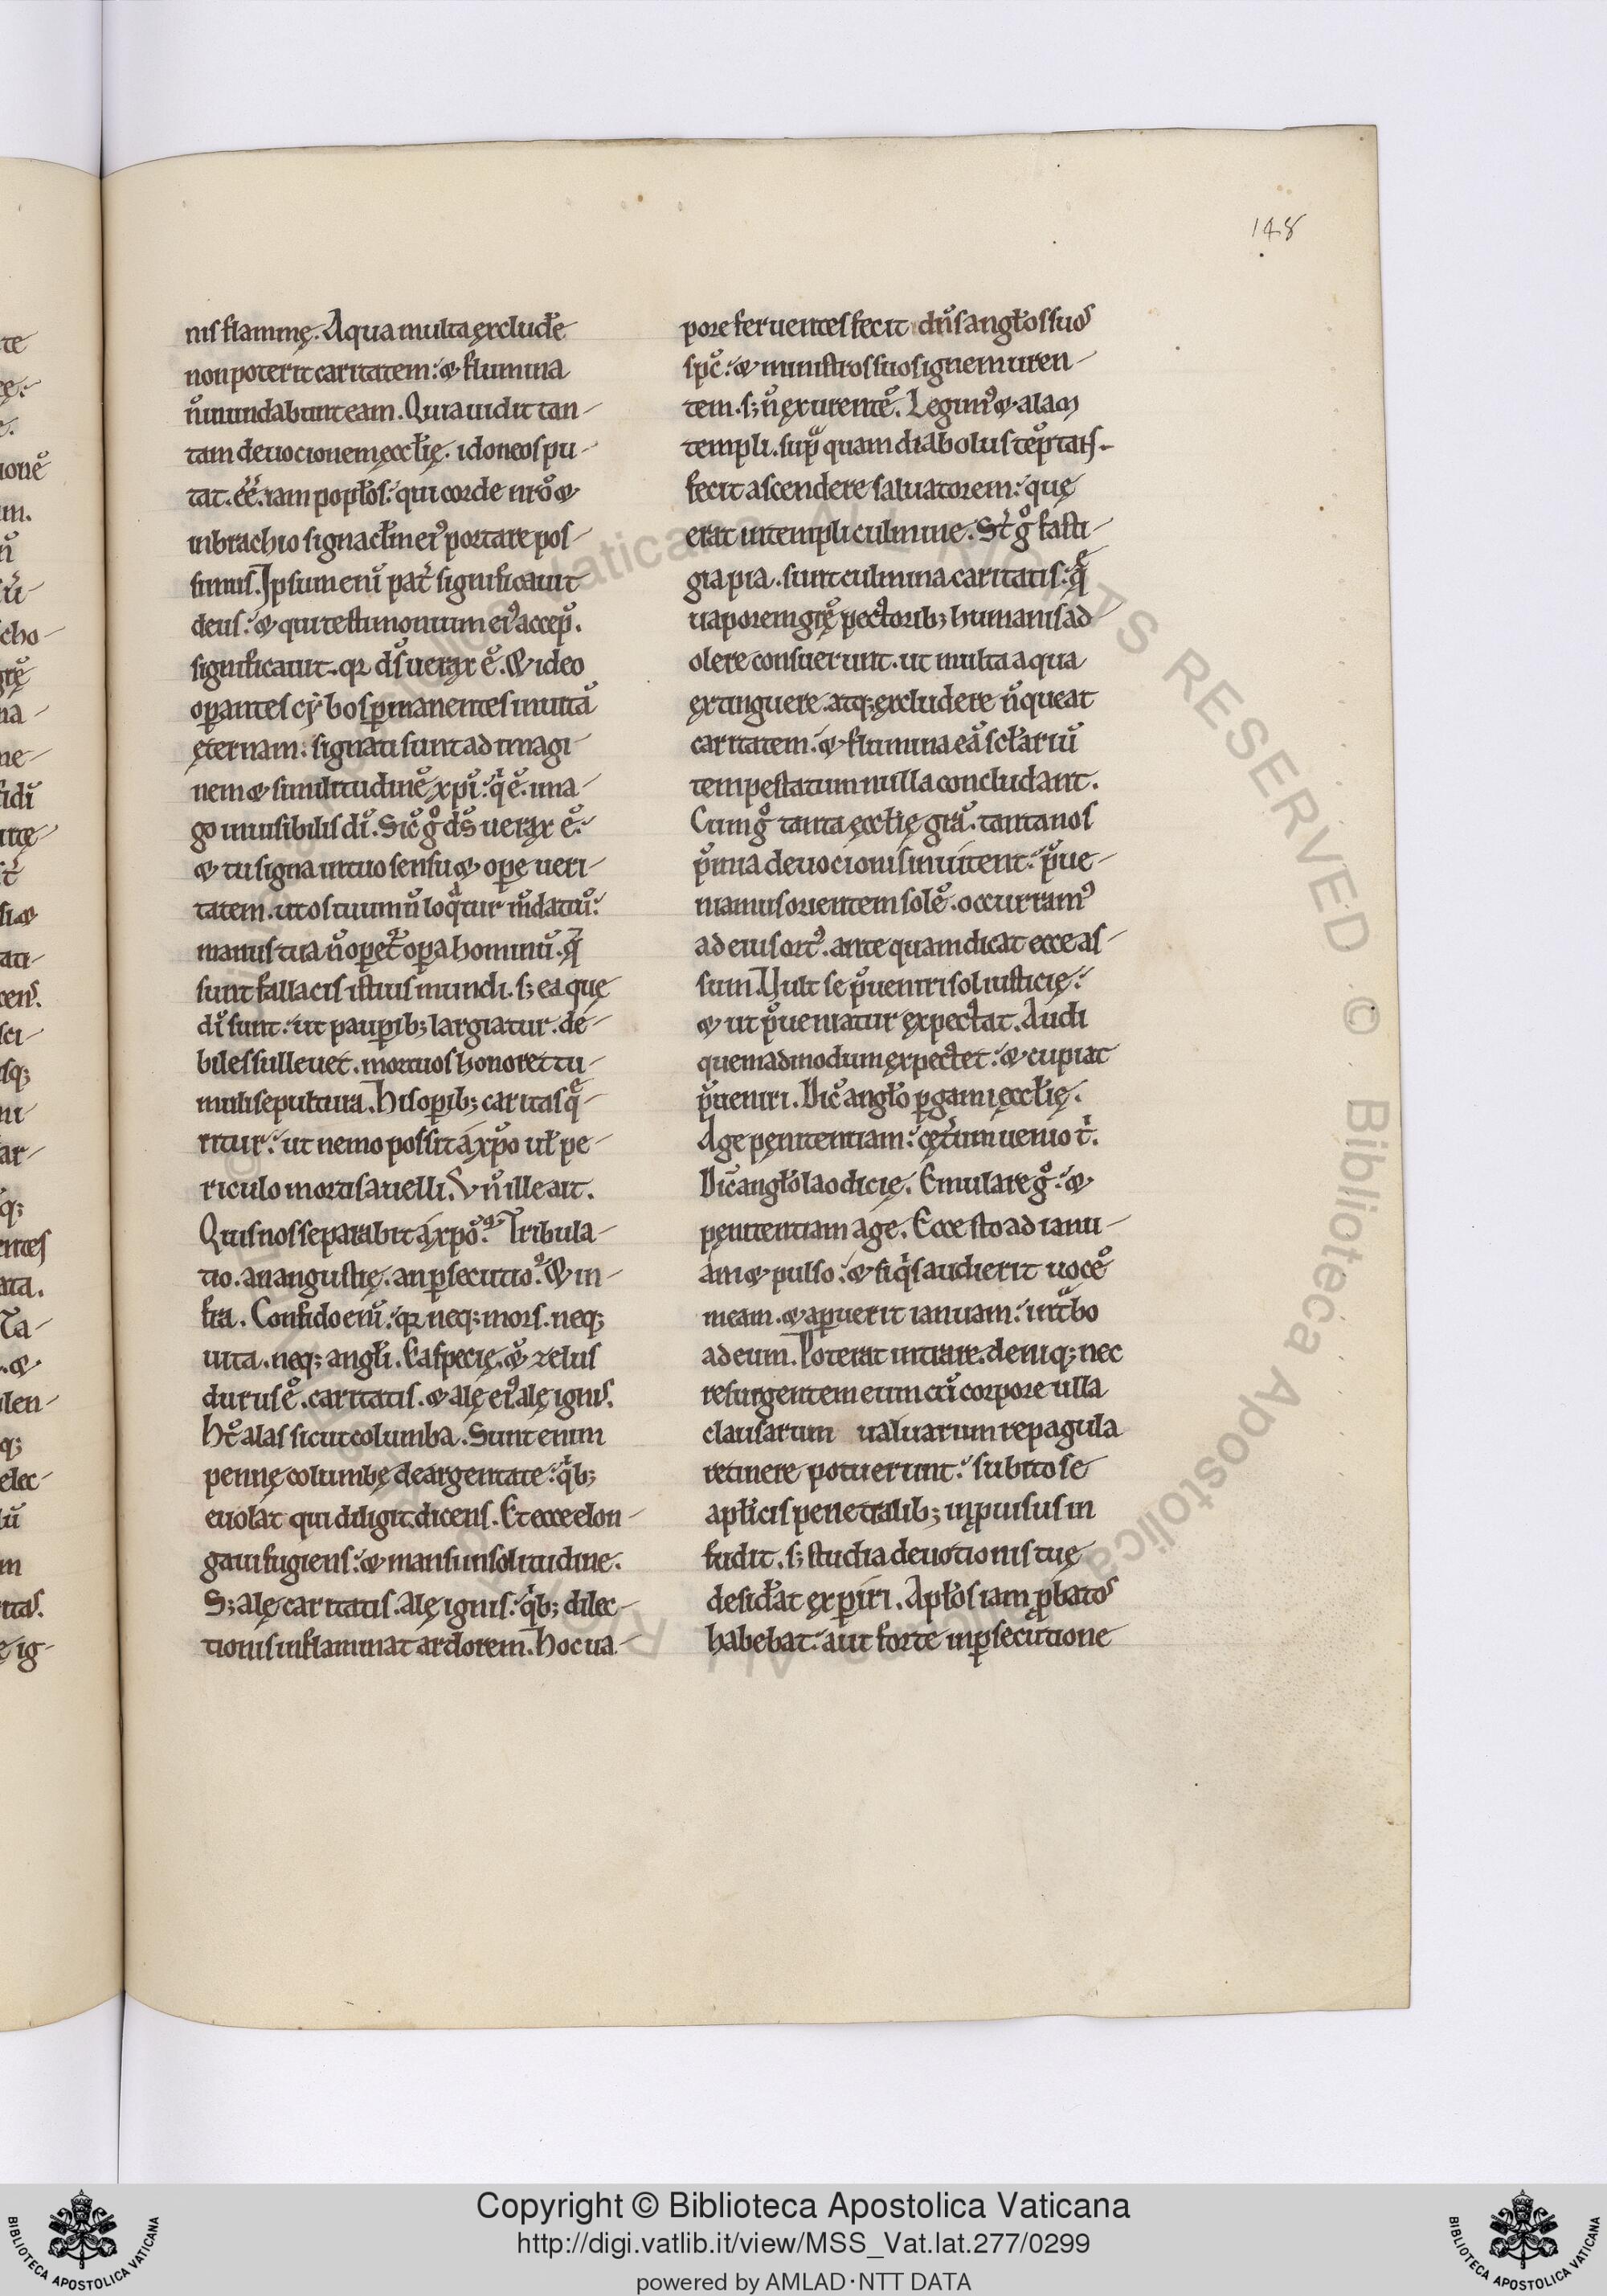 148
nis flammę. Aqua multa exclude̅
non poterit caritatem: & flumina
n̅ inundabunt eam. Quia uidit tan-
tam deuocionem ęccl̅ię. idoneos pu-
tat. e̅e̅. iam popl̅os: qui corde nr̅o &
in brachio signacl̅m ei᾽ portare pos-
simus. Ipsum eni̅ pat̅ significauit
deus: & qui testimonium ei᾽ accep̅.
significauit. qꝛ ds̅ uerax e̅. & ideo
oꝑantes cẏbos ꝑmanentes in uita̅
ęternam: signati sunt ad imagi-
nem & similitudine̅ xp̅i: q̇ e̅. ima-
go inuisibilis di̅. Sic̅ g° ds̅ uerax e̅:
& tu signa in tuo sensu & oꝑe ueri-
tatem. ut os tuum n̅ loq̅tur m̅datiu̅:
manus tua n̅ oꝑet̅ oꝑa hominu̅. q̅
sunt fallacis istius mundi. s; ea quę
di̅ sunt: ut pauꝑib; largiatur. de-
biles sulleuet. mortuos honoret tu-
muli sepultura. His oꝑib; caritas q̅-
ritur: ut nemo possit a xp̅o ul̅ pe-
riculo mortis auelli. Vn̅ ille ait.
Quis nos separabit a xp̅o: Tribula-
tio. an angustię. an ꝑsecutio: & in-
fra. Confido eni̅: qꝛ neq; mors. neq;
uita. neq; angl̅i. Ea specię. & zelus
durus e̅. caritatis. & alę ei᾽ alę ignis.
Ht̅ alas sicut columba. Sunt enim
pennę columbę deargentate: q̇b;
euolat qui diligit. dicens. Et ecce elon-
gaui fugiens: & mansi in solitudine.
S; alę caritatis. alę ignis: q̇b; dilec-
tionis inflammat ardorem. Hoc ua-
pore feruentes fecit dn̅s angl̅os suos
spc̅: & ministros suos ignem uren-
tem. s; n̅ exurente̅. Legim᾽ & alam
templi. suꝑ quam diabolus te̅ptans
fecit ascendere saluatorem: quę
erat in templi culmine. St̅ g° fasti-
gia pia. sunt culmina caritatis: q̅
uaporem grę̅ pectorib; humanis ad
olere consuerunt. ut multa aqua
extinguere. atq; excludere n̅ queat
caritatem: & flumina ea̅ scl̅ariu̅
tempestatum nulla concludant.
Cum g° tanta ęccl̅ię gra̅. tanta nos
p̅mia deuocionis inuitent: p̅ue-
niamus orientem sole̅. occurram᾽
ad eius ort᾽. ante quam dicat ecce as-
sum. Vult se p̅ueniri sol iusticię:
& ut p̅ueniatur expectat. Audi
quemadmodum expectet: & cupiat
p̅ueniri. Dic̅ angl̅o ꝑgami ęccl̅ię.
Age pęnitentiam: cęt̅um uenio ṫ.
Dic̅ angl̅o laodicię. Emulare g°: &
pęnitentiam age. Ecce sto ad ianu-
am & pulso: & si q̇s audierit uoce̅
meam. & aꝑuerit ianuam: int̅bo
ad eum. Poterat intrare. deniq; nec
resurgentem eum cu̅ corpore ulla
clausarum ualuarum repagula
retinere potuerunt: subito se
apl̅icis penetralib; inpuisus in
fudit. s; studia deuotionis tuę
desid̅at exꝑiri. Apl̅os iam ꝓbatos
habebat: aut forte in ꝑsecutione
© Biblioteca Apostolica Vaticana ALL RIGHTS RESERVED
Copyright © Biblioteca Apostolica Vaticana
http://digi.vatlib.it/view/MSS_Vat.lat.277/0299
powered by AMLAD·NTT DATA
BIBLIOTECA APOSTOLICA VATICANA
BIBLIOTECA APOSTOLICA VATICANA